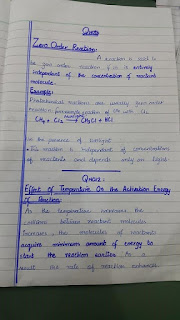 Zero Order Reaction:
A reaction is said to
be zero order reaction if it is entirely
independent of the concentration of reactant
molecule.
Example:
Photochemical reactions are usually zero order
reaction for example reaction of CH₄ with Cl₂
CH₄ + Cl₂ → CH₃Cl + HCl
In the presence of sunlight
This reaction is independent of concentrations
of reactants and depends only on light.
Effect of Temperature On the Activation Energy
of Reaction:
As the temperature increases the
collisions between reactant molecules
increases. the molecules of reactants
acquire minimum amount of energy to
start the reaction earlier. As a
result the rate of reaction enhanced